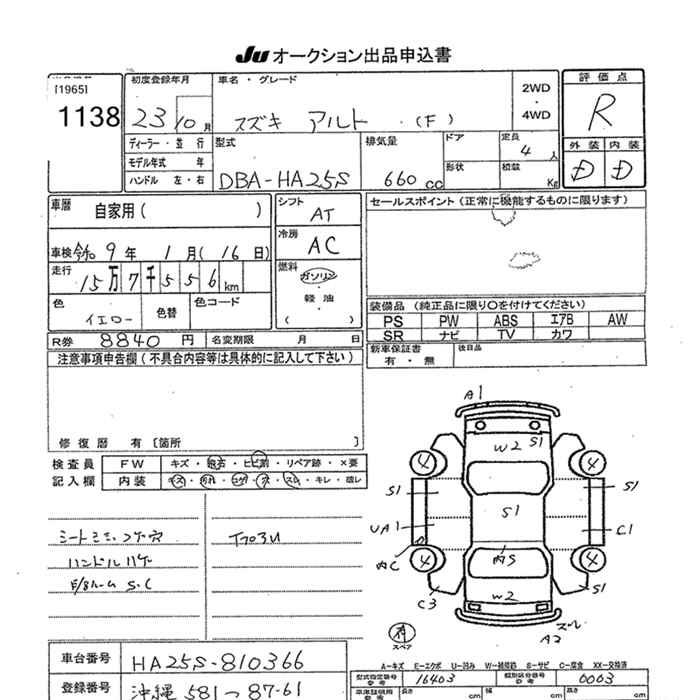 Ju オークション出品申込書
[1965]
1138
初度登録年月
23 10 月
車名・グレード
スズキ アルト (F)
2WD
・
4WD
評価点
R
外装 内装
D D
ディーラー・並行
モデル年式 年
ハンドル 左・右
型式
DBA-HA25S
排気量
660 cc
ドア
形状
定員
4 人
積載
Kg
車歴
自家用 ( )
車検 令和 9 年 1 月 ( 16 日)
走行
15万7千556 km
色
イエロー
色替
色コード
シフト
AT
冷房
AC
燃料
ガソリン
・
軽油
・
( )
セールスポイント (正常に機能するものに限ります)
装備品 (純正品に限り○を付けてください)
PS PW ABS エアB AW
SR ナビ TV カワ
R券 8840 円 名変期限 月 日
新車保証書
有・無
後日品
注意事項申告欄 (不具合内容等は具体的に記入して下さい)
修復歴 有 〔箇所 〕
検査員
記入欄
FW キズ・飛石・ヒビ割・リペア跡・×要
内装 キズ・汚れ・コゲ・穴・スレ・キレ・破レ
ハンドルハゲ
S.C
A1
W2 S1
4 4
S1 S1 S1
UA1 C1
内C 内S
4 4
C3 W2 S1
スレ
A2
有
スペア
A-キズ E-エクボ U-凹み W-補修跡 S-サビ C-腐食 XX-交換済
車台番号 HA25S-810366
登録番号 沖縄 581 つ 87-61
型式指定番号
参考
16403
類別区分番号
参考
0063
長さ cm
幅 cm
高さ cm